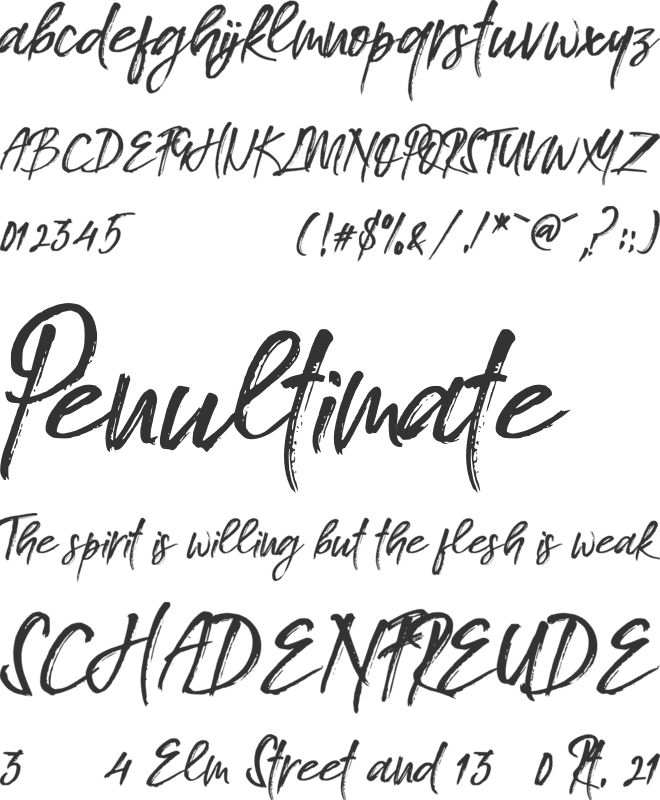 abcdefghijklmnopqrstuvwxyz
ABCDEFGHIJKLMNOPQRSTUVWXYZ
012345 (!#$%&/.!*`@´,?:;)
Penultimate
The spirit is willing but the flesh is weak
SCHADENFREUDE
3 4 Elm Street and 13 0 Rt. 21